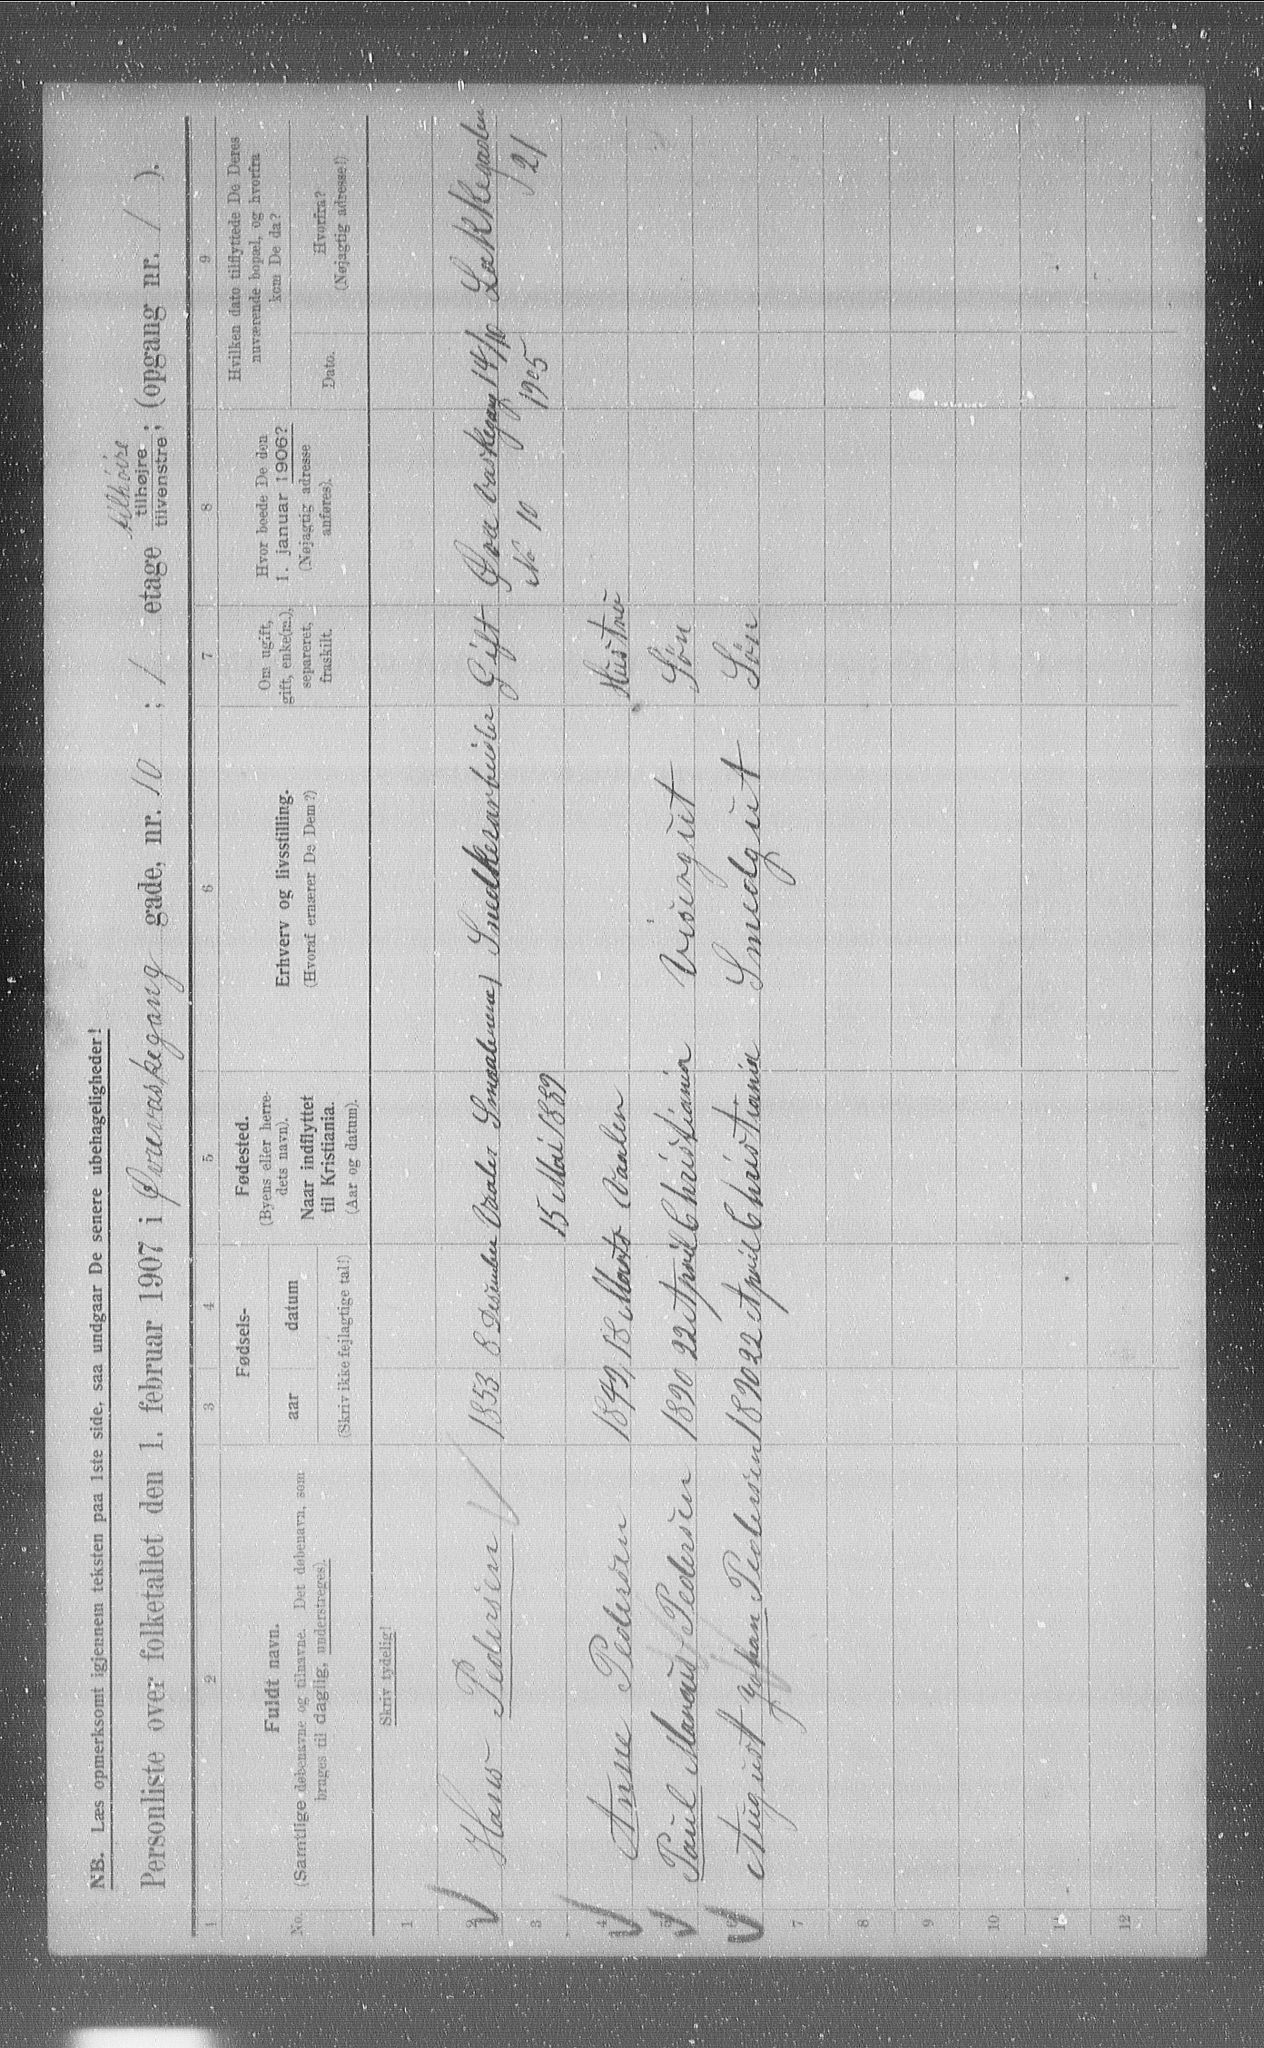 NB. Læs opmerksomt igjennem teksten paa 1ste side, saa undgaar De senere ubehageligheder!
tilhøire
Personliste over folketallet den 1. februar 1907 i Øvrevaskegang gade, nr. 10; 1 etage tilhøjre tilvenstre; (opgang nr. 1).
1 2 3 4 5 6 7 8 9
No.
Fuldt navn.
(Samtlige døbenavne og tilnavne. Det døbenavn, som
bruges til daglig, understreges).
Fødsels-
aar datum
(Skriv ikke fejlagtige tal!)
Fødested.
(Byens eller herre-
dets navn).
Naar indflyttet
til Kristiania.
(Aar og datum).
Erhverv og livsstilling.
(Hvoraf ernærer De Dem?)
Om ugift,
gift, enke(m.),
separeret,
fraskilt.
Hvor boede De den
1. januar 1906?
(Nøjagtig adresse
anføres).
Hvilken dato tilflyttede De Deres
nuværende bopæl, og hvorfra
kom De da?
Dato.
Hvorfra?
(Nøjagtig adresse!)
Skriv tydelig!
1
2 Hans Pedersen 1853 8 Desember Vaaler Smaalenene) Snedkerarbeider Gift Øvre Vaskegang 14/10 Lakkegaden
3 15 Mai 1889 No 10 1905 21
4 Anne Pedersen 1849, 18 Marts Vaalen Hustru
5 Paul Marcus Pedersen 1890 22 April Christiania Visergut Søn
6 August Johan Pedersen 1890 22 April Christiania Smedgut Søn
7
8
9
10
11
12